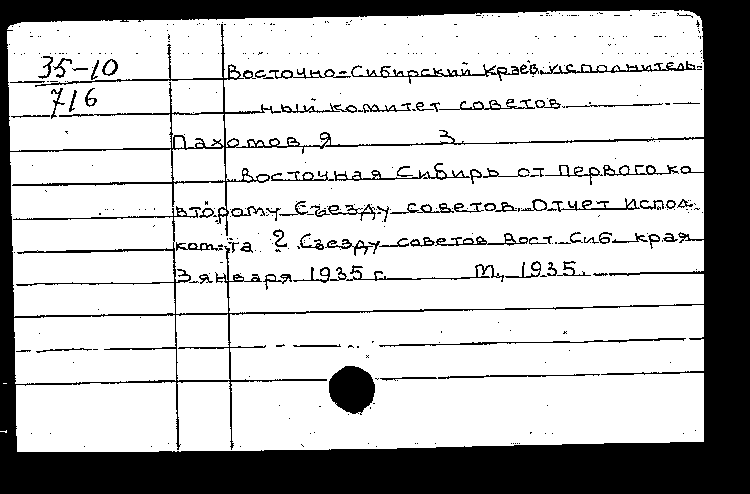 35-10
716
Восточно-Сибирский краев. исполнитель-
ный комитет советов.
Пахомов, Я. З.
Восточная Сибирь от первого ко
второму съезду советов. Отчет испол-
ком-та 2 съезду советов Вост. Сиб. края
3 января 1935 г. М., 1935.